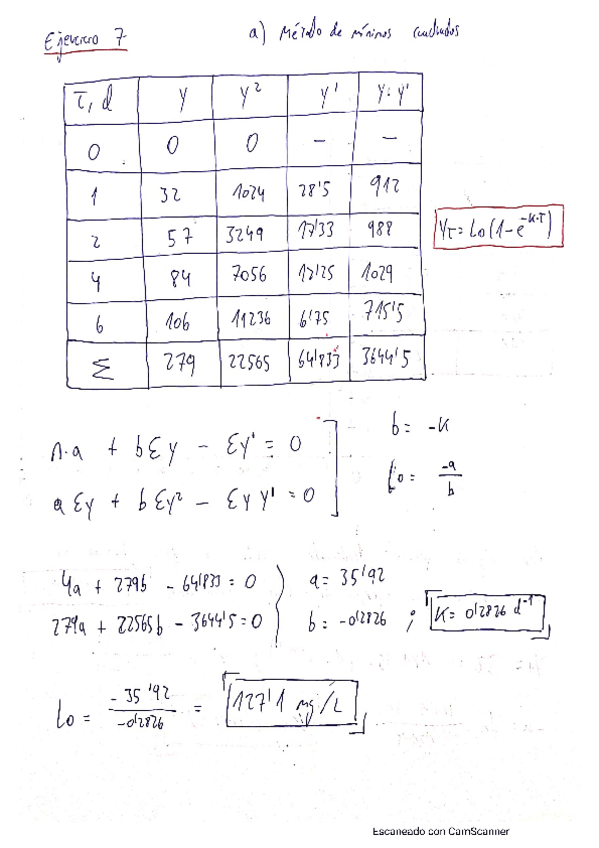 Ejercicio 7 a) Método de mínimos cuadrados
t, d y y² y' y·y'
0 0 0 — —
1 32 1024 28'5 912
2 57 3249 17'33 988
4 84 7056 12'25 1029
6 106 11236 6'75 715'5
Σ 279 22565 64'833 3644'5
Yt = Lo(1-e^-K·t)
n·a + bΣy - Σy' = 0
aΣy + bΣy² - Σyy' = 0
b = -K
Lo = -a/b
4a + 279b - 64'833 = 0
279a + 22565b - 3644'5 = 0
a = 35'92
b = -0'2826 ; K = 0'2826 d^-1
Lo = -35'92/-0'2826 = 127'1 mg/L
Escaneado con CamScanner